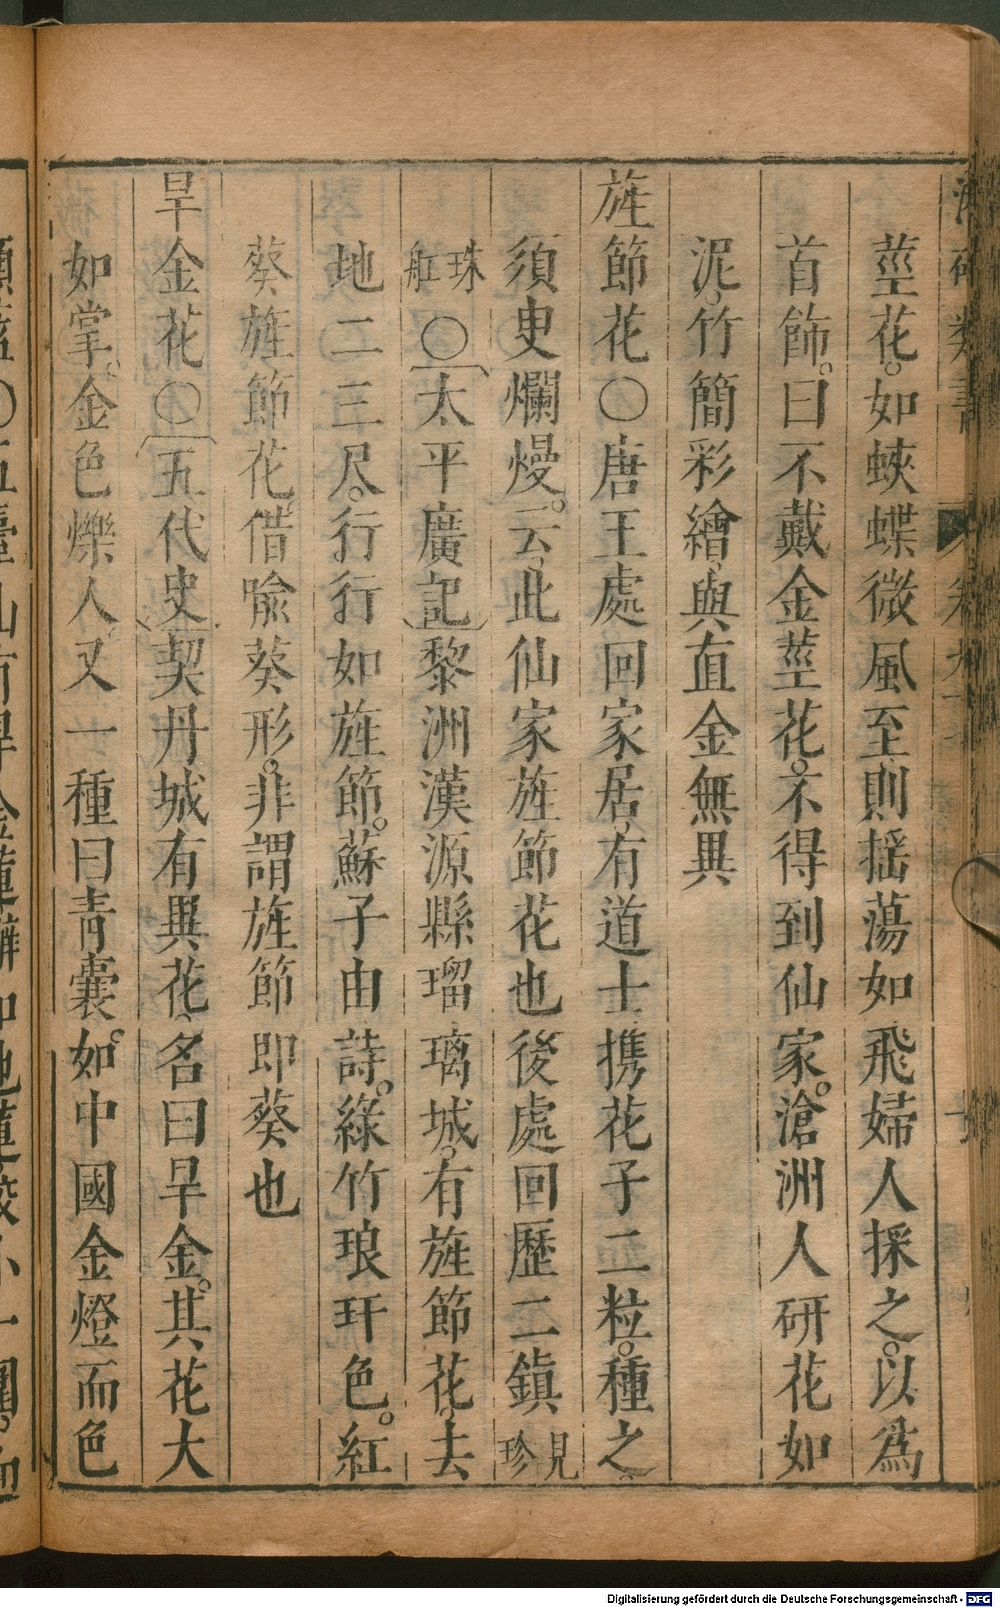 莖花。如蛺蝶微風至則揺蕩如飛婦人採之。以爲
首飾。曰不戴金莖花。不得到仙家。滄洲人研花如
泥。竹簡彩繪。與真金無異
旌節花〇唐王處回家居有道士携花子二粒。種之。
須臾爛熳。云此仙家旌節花也後處回歷二鎮見珍
珠舡〇太平廣記黎洲漢源縣瑠璃城。有旌節花。去
地二三尺。行行如旌節。蘇子由詩。綠竹琅玕色。紅
葵旌節花。借喩葵形。非謂旌節即葵也
旱金花〇五代史契丹城有異花。名曰旱金。其花大
如掌。金色爍人。又一種曰青囊。如中國金燈而色
Digitalisierung gefördert durch die Deutsche Forschungsgemeinschaft - DFG